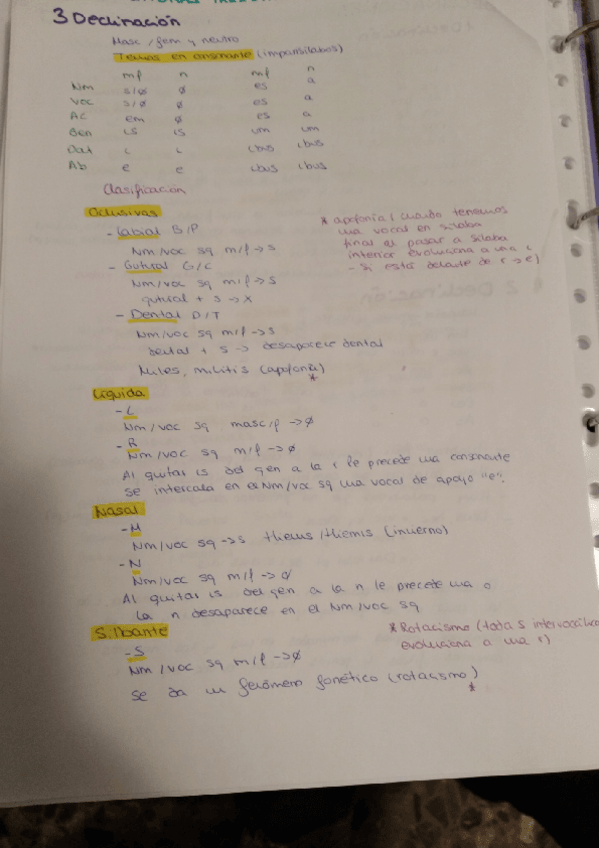 3 Declinación
Masc / fem y neutro
Temas en consonante (imparisílabos)
m/f n m/f n
Nm s/ø ø es a
Voc s/ø ø es a
Ac em ø es a
Gen is is um um
Dat i i ibus ibus
Ab e e ibus ibus
Clasificación
Oclusivas
- Labial B/P
Nm/voc sg m/f -> s
- Gutural G/C
Nm/voc sg m/f -> s
gutural + s -> x
- Dental D/T
Nm/voc sg m/f -> s
dental + s -> desaparece dental
Miles, militis (apofonía)
*
* apofonía ( cuando tenemos
una vocal en sílaba
final al pasar a sílaba
interior evoluciona a una i
- Si está delante de r -> e)
Líquida
- L
Nm/voc sg masc/f -> ø
- R
Nm/voc sg m/f -> ø
Al quitar is del gen a la r le precede una consonante
se intercala en el Nm/voc sg una vocal de apoyo "e".
Nasal
- M
Nm/voc sg -> s hiems/hiemis (invierno)
- N
Nm/voc sg m/f -> ø
Al quitar is del gen a la n le precede una o
la n desaparece en el Nm/voc sg
Silbante
- S
Nm/voc sg m/f -> ø
se da un fenómeno fonético (rotacismo)
*
* Rotacismo (toda s intervocálica
evoluciona a una r)